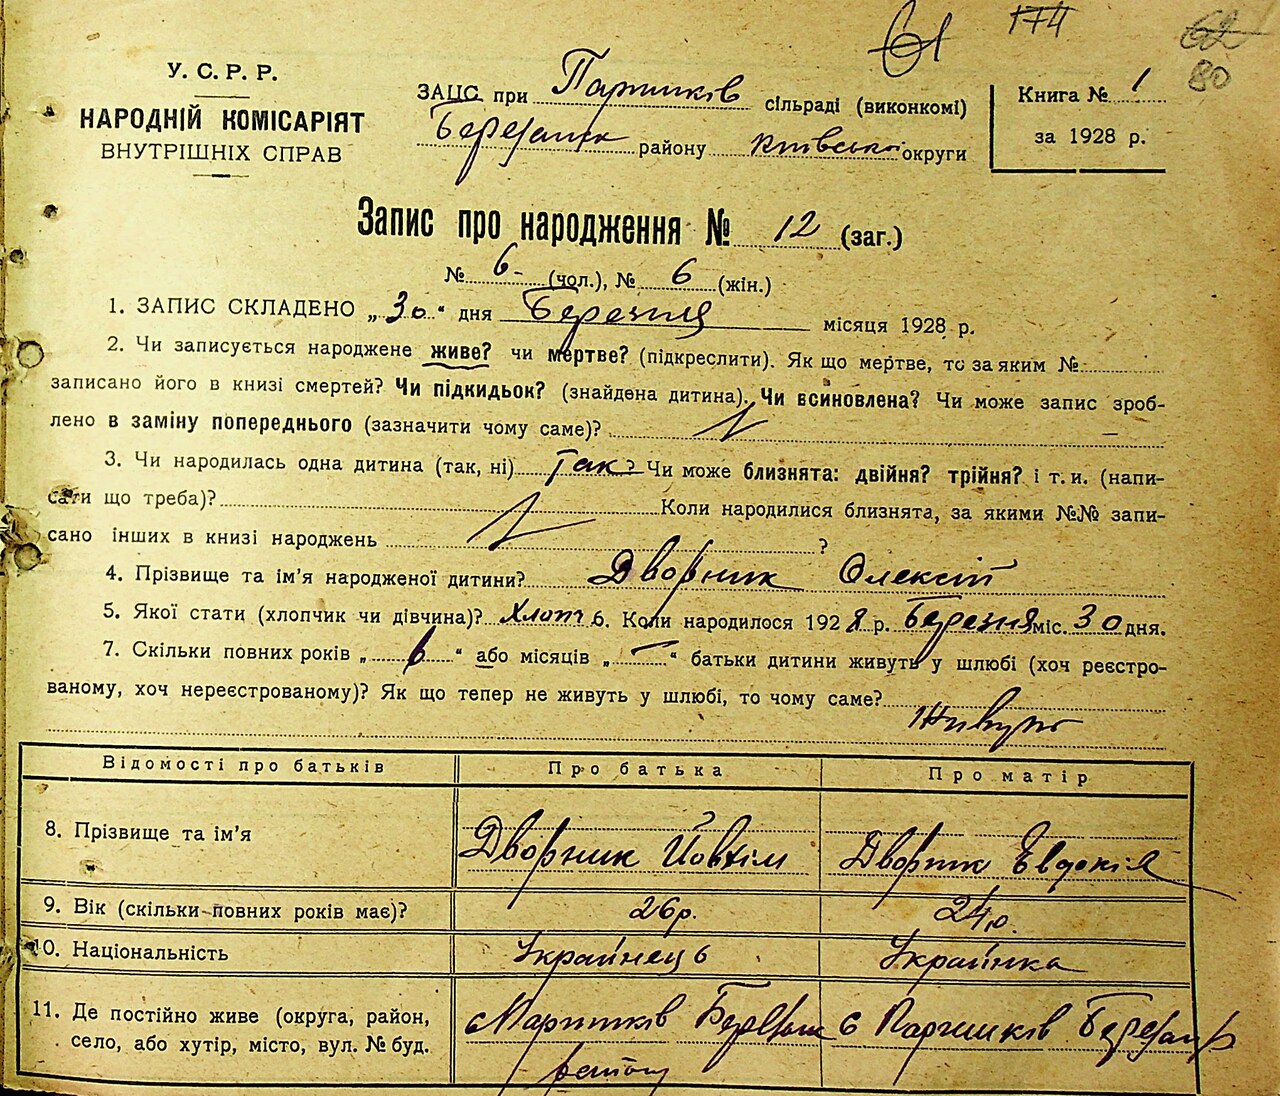 61 174 62
80
У. С. Р. Р.
НАРОДНІЙ КОМІСАРІЯТ
ВНУТРІШНІХ СПРАВ
ЗАЦС при Паришків сільраді (виконкомі)
Березанськ району київської округи
Книга № 1
за 1928 р.
Запис про народження № 12 (заг.)
№ 6 (чол.), № 6 (жін.)
1. ЗАПИС СКЛАДЕНО „30“ дня Березня місяця 1928 р.
2. Чи записується народжене живе? чи мертве? (підкреслити). Як що мертве, то за яким №
записано його в книзі смертей? Чи підкидьок? (знайдена дитина). Чи всиновлена? Чи може запис зроб-
лено в заміну попереднього (зазначити чому саме)?
3. Чи народилась одна дитина (так, ні) так? Чи може близнята: двійня? трійня? і т. и. (напи-
сати що треба)? Коли народилися близнята, за якими №№ запи-
сано інших в книзі народжень ?
4. Прізвище та ім’я народженої дитини? Дворник Олексій
5. Якої стати (хлопчик чи дівчина)? Хлопч 6. Коли народилося 1928 р. Березня міс. 30 дня.
7. Скільки повних років „6“ або місяців „—“ батьки дитини живуть у шлюбі (хоч реєстро-
ваному, хоч нереєстрованому)? Як що тепер не живуть у шлюбі, то чому саме?
Живуть
Відомості про батьків Про батька Про матір
8. Прізвище та ім’я Дворник Йовхім Дворник Евдокія
9. Вік (скільки повних років має)? 26 р. 24 р.
10. Національність Українець Українка
11. Де постійно живе (округа, район, с Паришків Березан с Паришків Березан
село, або хутір, місто, вул. № буд. району